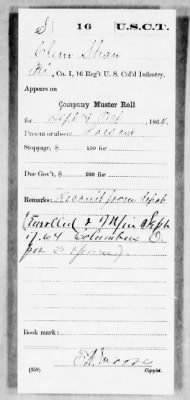 S | 16 | U.S.C.T.
Shaw
Pvt, Co. I, 16 Reg't U. S. Col'd Infantry.
Appears on
Company Muster Roll
for Sept & Oct, 1864.
Present or absent Present
Stoppage, $ 100 for
Due Gov't, $ 100 for
Remarks: Recruit from depot
(Enrolled & M/in Sept
17.64 Columbus O.
for 3 years)
Book mark:
(358) Copyist.